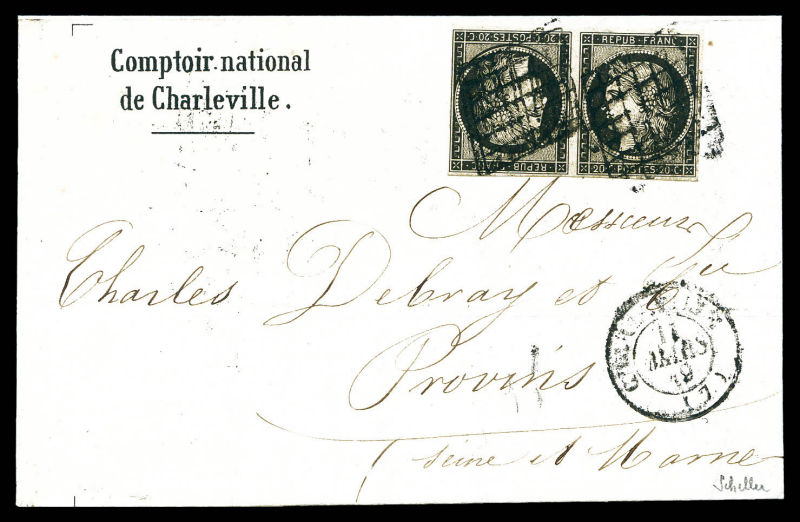 Comptoir national
de Charleville.
20·C·POSTES·20·C
REPUB·FRANC
REPUB·FRANC
20·C·POSTES·20·C
Messieurs
Charles Debray et Cie
Provins
(Seine et Marne
11
MARS
(7)
Scheller